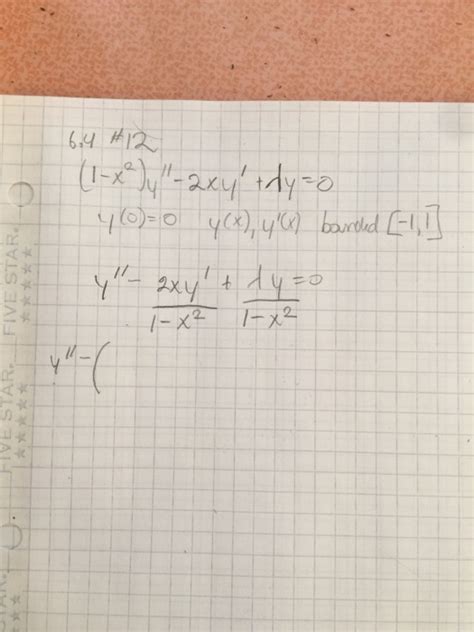 6.4 #12
(1-x²)y''-2xy'+λy=0
y(0)=0 y(x), y'(x) bounded [-1,1]
y''- 2xy'/1-x² + λy/1-x² =0
y''-(
FIVE STAR.
FIVE STAR.
STAR.